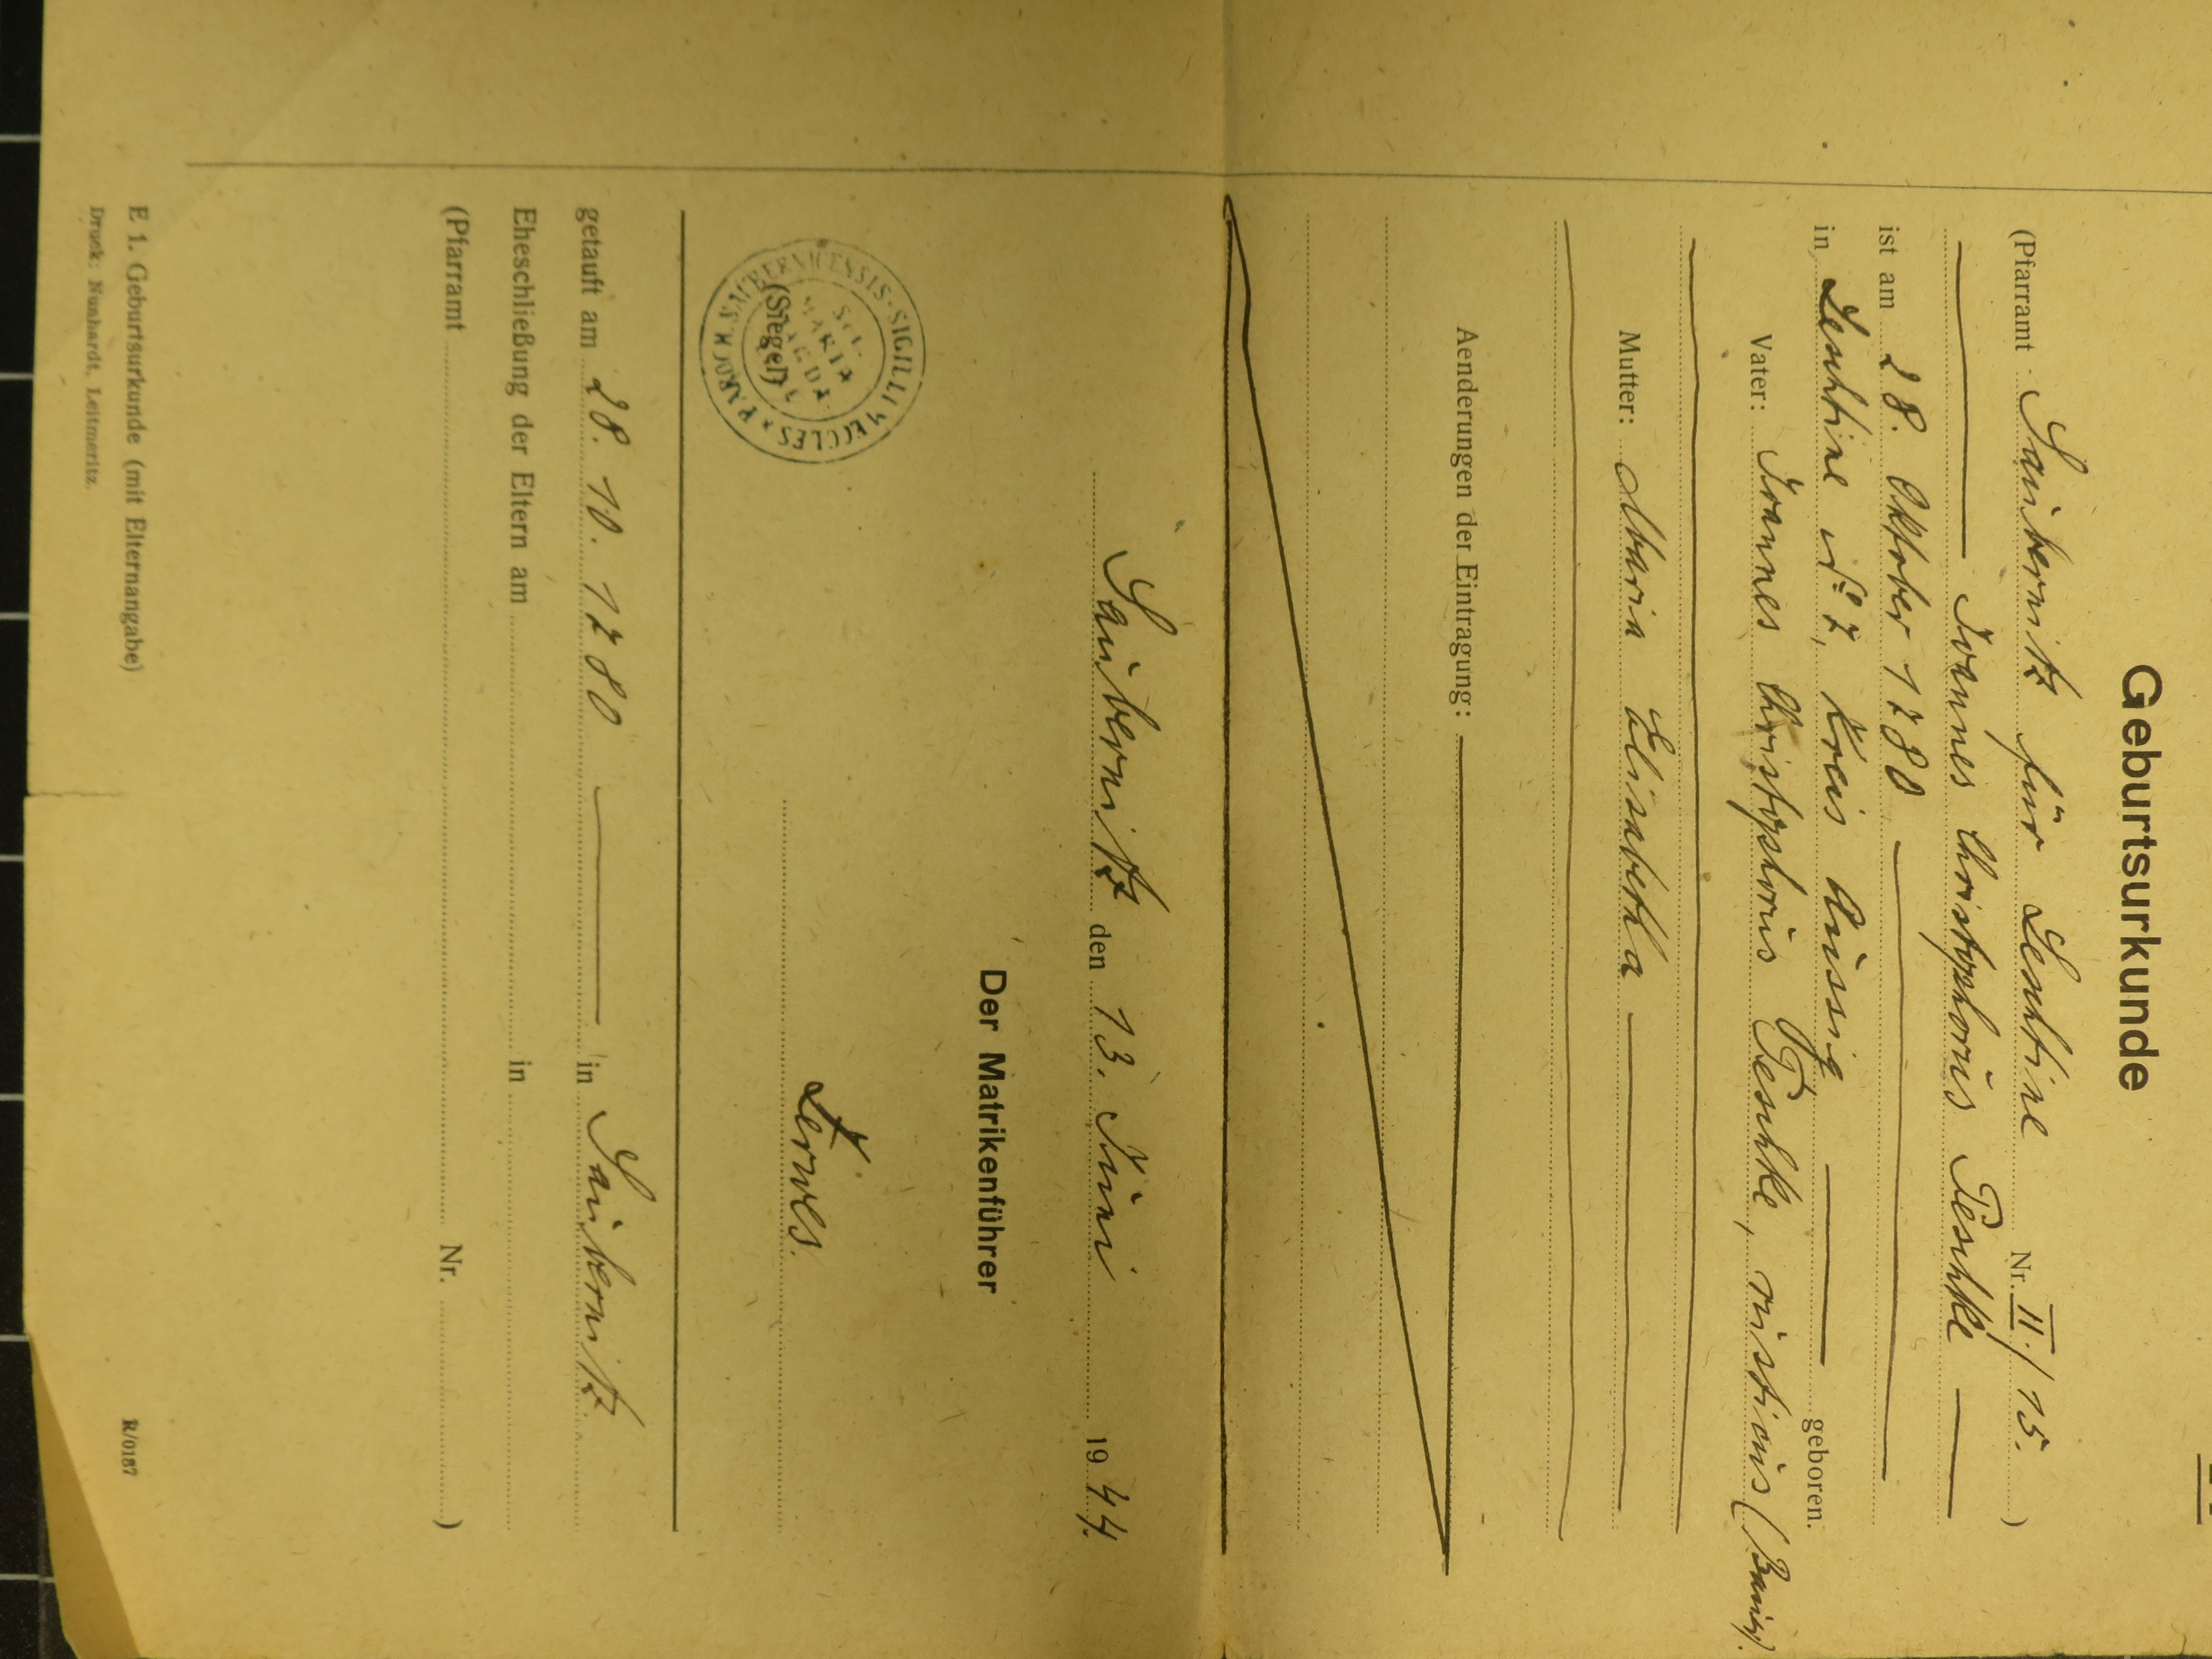 Geburtsurkunde
(Pfarramt Saubernitz für Leschtine Nr. II./15. )
Joannes Christophorus Peschke
ist am 28. Oktober 1780
in Leschtine No 7, Kreis Aussig, geboren.
Vater: Joannes Christophorus Peschke, rusticus (Bauer).
Mutter: Maria Elisabetha
Aenderungen der Eintragung:
Saubernitz den 13. Juni 1944.
Der Matrikenführer
SIGILLUM ECCLES * PAROCH.
MARIA
(Siegel)
Zerwes.
getauft am 28. 10. 1780 in Saubernitz.
Eheschließung der Eltern am in
(Pfarramt Nr. )
E 1. Geburtsurkunde (mit Elternangabe) R/0187
Druck: Nunhardt, Leitmeritz.